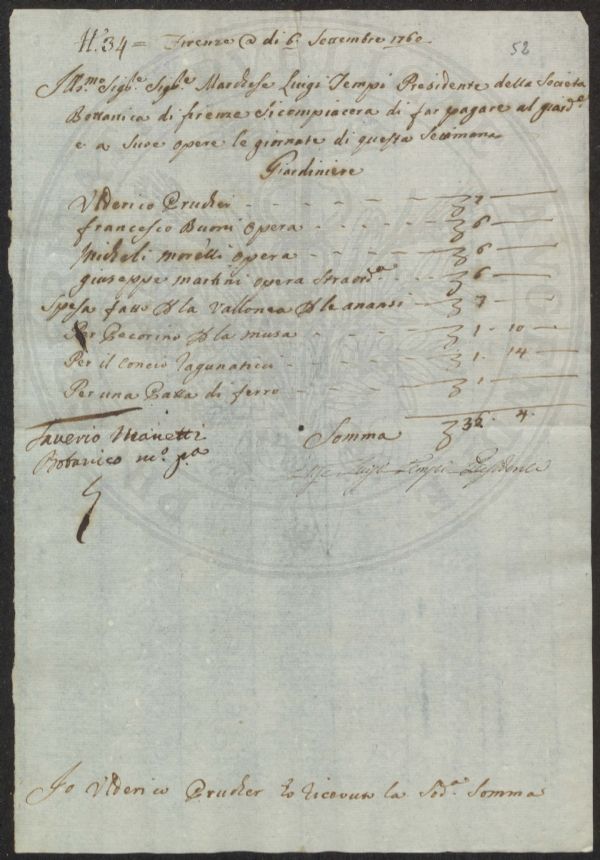 N.° 34 = Firenze @ di 6. Settembre 1760
52
Ill:mo Sig:re Sig:re Marchese Luigi Tempi Presidente della Societa
Bottanica di firenze si compiacera di far pagare al giard:e
e a sue opere le giornate di questa Settimana
Giardiniere
Vlderico Prucker - - - 7 -
francesco Buoni opera - - - 6 -
Micheli morelli opera - - - 6 -
giuseppe martini opera straord:a - - 6 -
Spesa fatt la Vallonea le ananasi - - 7 -
Per Pecorino la musa - - - 1 - 10 -
Per il Concio - - - 1 - 14 -
Per una Pala di ferro - - - 1 -
Saverio Manetti
Somma 36. 4.
Botanico m:o p:a
Luigi Tempi Presidente
Io Vlderico Prucker ho ricevuto la Sod:a Somma